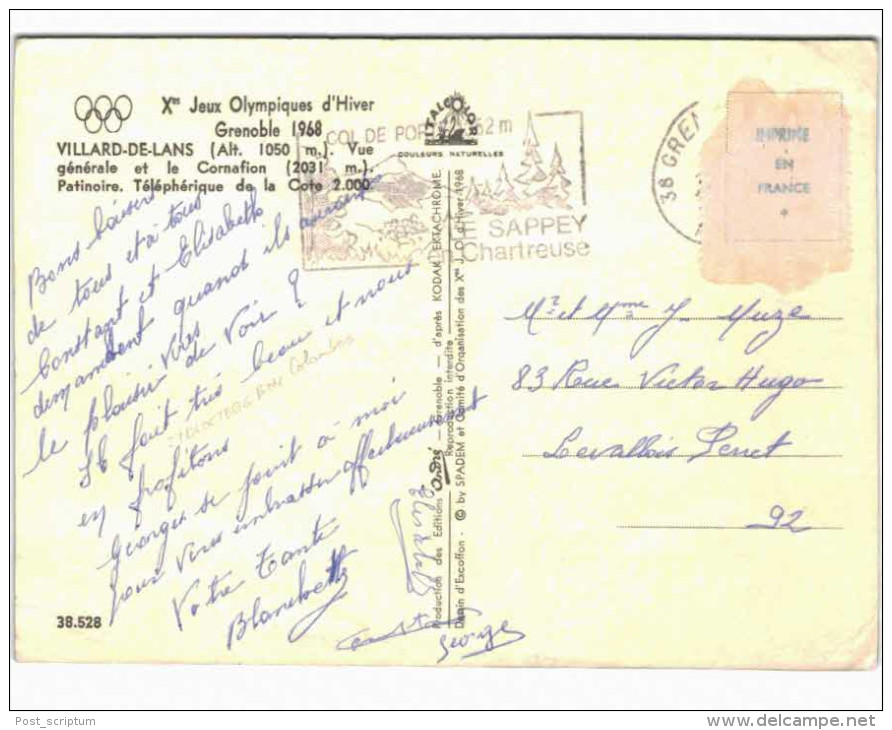 Xes Jeux Olympiques d'Hiver
Grenoble 1968
VILLARD-DE-LANS (Alt. 1050 m.). Vue
générale et le Cornafion (2031 m.).
Patinoire. Téléphérique de la Cote 2.000.
ITALCOLOR
COULEURS NATURELLES
COL DE POR 62 m
LE SAPPEY
en Chartreuse
38 GREN
IMPRIMÉ
EN
FRANCE
*
Bons baisers
de tous et à tous
Constant et Elisabeth
demandent quand ils auront
le plaisir de vous voir ?
Il fait très beau et nous
en profitons
Georges se joint à moi
pour vous embrasser affectueusement
Votre Tante
Blanchette
Elisabeth
Constant
George
Production des Editions André — Grenoble — d'après KODAK EKTACHROME.
Reproduction interdite
Dessin d'Excoffon - © by SPADEM et Comité d'Organisation des Xes J. O. d'Hiver 1968
Mr et Mme J. Muze
83 Rue Victor Hugo
Levallois Perret
92
38.528
Post_scriptum
www.delcampe.net